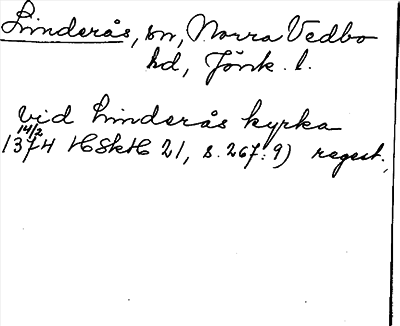 Linderås, sn, Norra Vedbo
hd, Jönk. l.
vid Linderås kyrka
14/2
1374 HSkH 21, s. 267: 9) regest.,